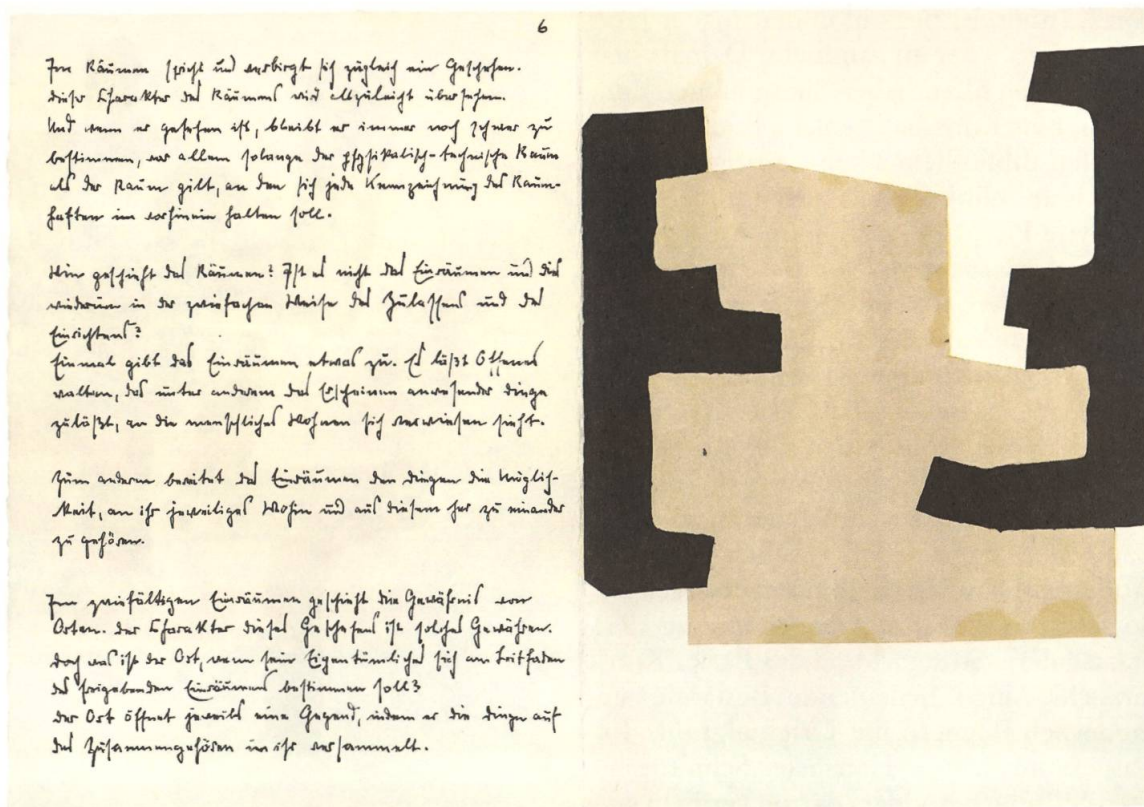 6
Im Räumen spricht und verbirgt sich zugleich ein Geschehen.
Dieser Charakter des Räumens wird allzuleicht übersehen.
Und wenn er gesehen ist, bleibt er immer noch schwer zu
bestimmen, vor allem solange der physikalisch-technische Raum
als der Raum gilt, an den sich jede Kennzeichnung des Raum-
haften im vorhinein halten soll.
Wie geschieht das Räumen? Ist es nicht das Einräumen und dies
wiederum in der zwiefachen Weise des Zulassens und des
Einrichtens?
Einmal gibt das Einräumen etwas zu. Es läßt Offenes
walten, das unter anderem das Erscheinen anwesender Dinge
zuläßt, an die menschliches Wohnen sich verwiesen sieht.
Zum anderen bereitet das Einräumen den Dingen die Möglich-
keit, an ihr jeweiliges Wohin und aus diesem her zu einander
zu gehören.
Im zwiefältigen Einräumen geschieht die Gewährnis von
Orten. Der Charakter dieses Geschehens ist solches Gewähren.
Doch was ist der Ort, wenn sein Eigentümliches sich am Leitfaden
des freigebenden Einräumens bestimmen soll?
Der Ort öffnet jeweils eine Gegend, indem er die Dinge auf
das Zusammengehören in ihr versammelt.